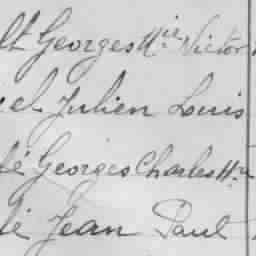 lt Georges Mie Victor
el Julien Louis
lé Georges Charles Mie
lé Jean Paul